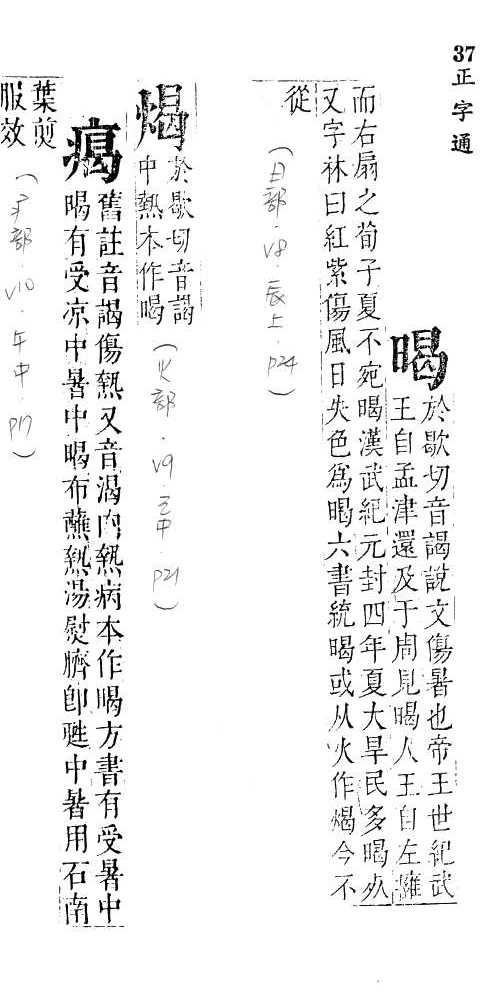 37 正字通
暍
於歇切音謁說文傷暑也帝王世紀武
王自孟津還及于周見暍人王自左擁
而右扇之荀子夏不宛暍漢武紀元封四年夏大旱民多暍死
又字林曰紅紫傷風日失色為暍六書統暍或从火作煬今不
從
(日部.V8.辰上.P24)
煬
於歇切音謁
中熱本作暍
(火部.V9.巳中.P21)
𤸎
舊註音謁傷熱又音渴內熱病本作暍方書有受暑中
暍有受凉中暑中暍布蘸熱湯熨臍卽甦中暑用石南
葉煎
服效
(疒部.V10.午中.P17)